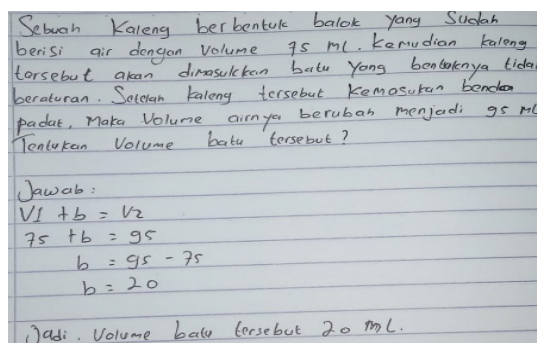 Sebuah Kaleng berbentuk balok yang Sudah
berisi air dengan Volume 75 ml. Kemudian kaleng
torsebut akan dimasukkan batu Yang bentuknya tida
beraturan. Setelah kaleng tersebut Kemasukan benda
padat, Maka Volume airnya berubah menjadi 95 ml
Tentukan Volume batu tersebut?
Jawab:
V1 + b = V2
75 + b = 95
b = 95 - 75
b = 20
Jadi. Volume batu tersebut 20 ml.